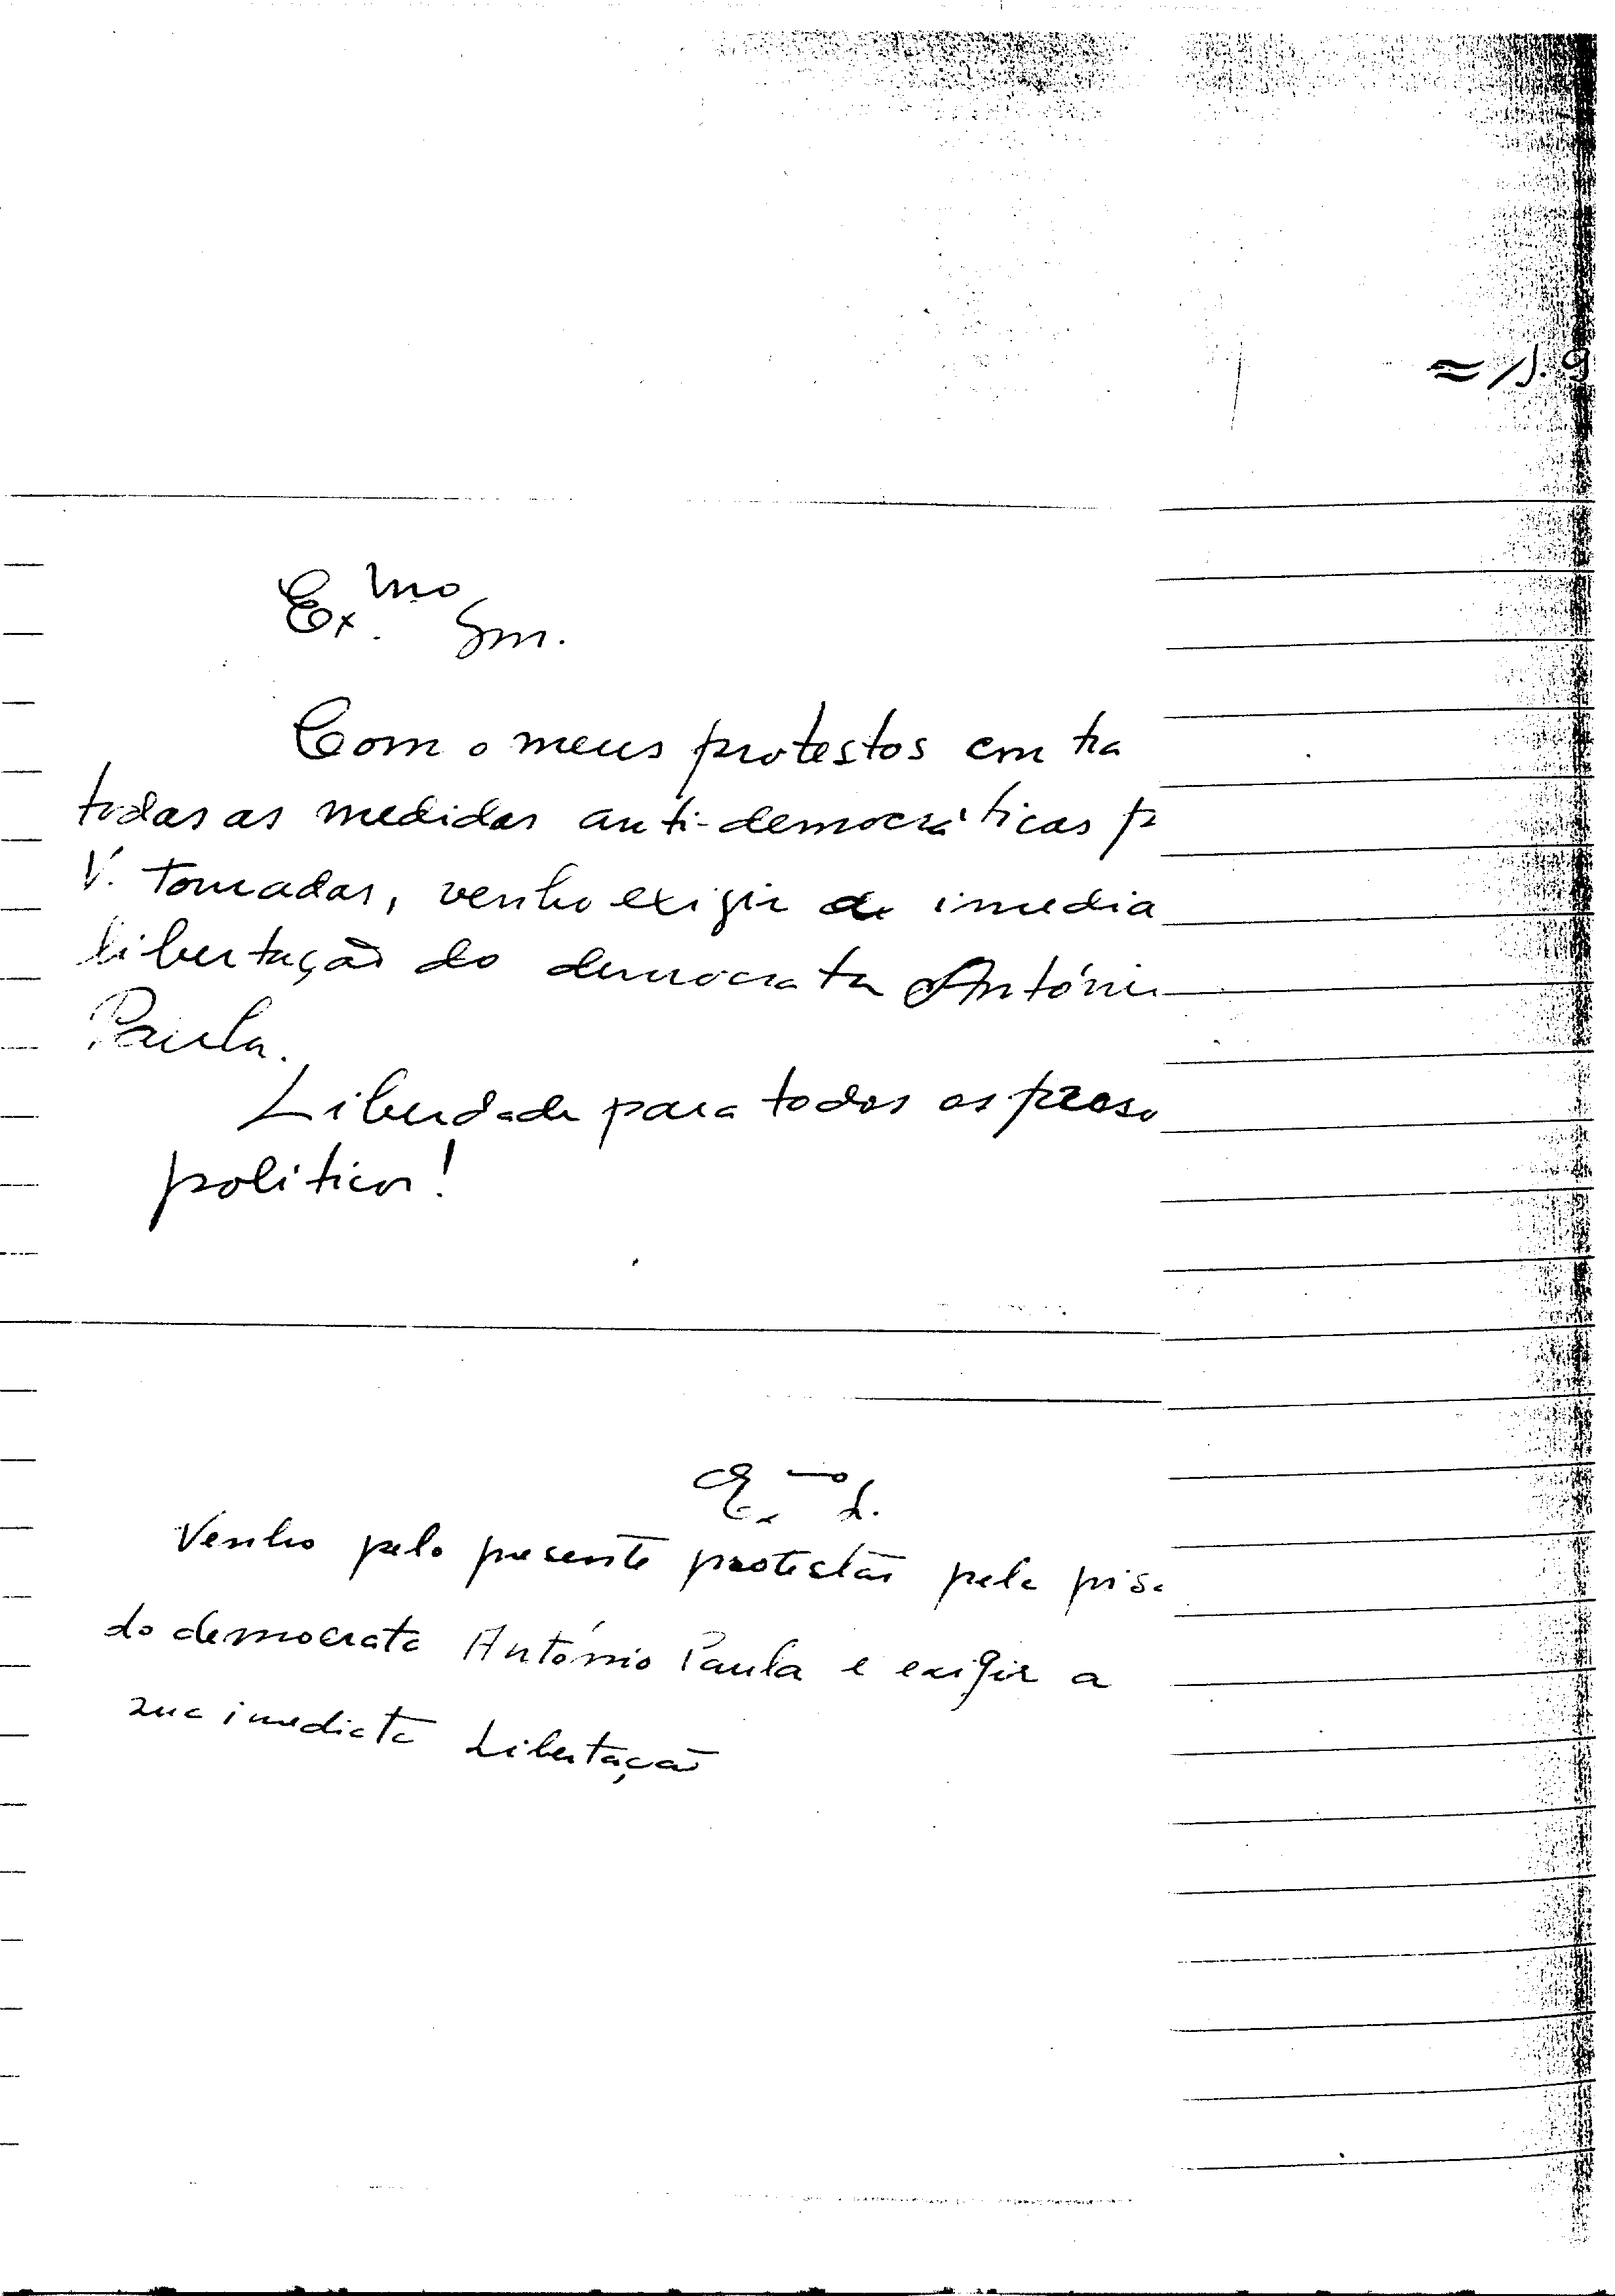 Ex.mo Snr.
Com o meus protestos contra
todas as medidas anti-democráticas p
V. tomadas, venho exigir a imedia
libertação do democrata António
Paula.
Liberdade para todos os preso
politicos!
Ex.mo S.
Venho pelo presente protestar pela prisã
do democrata António Paula e exigir a
sua imediata Libertação